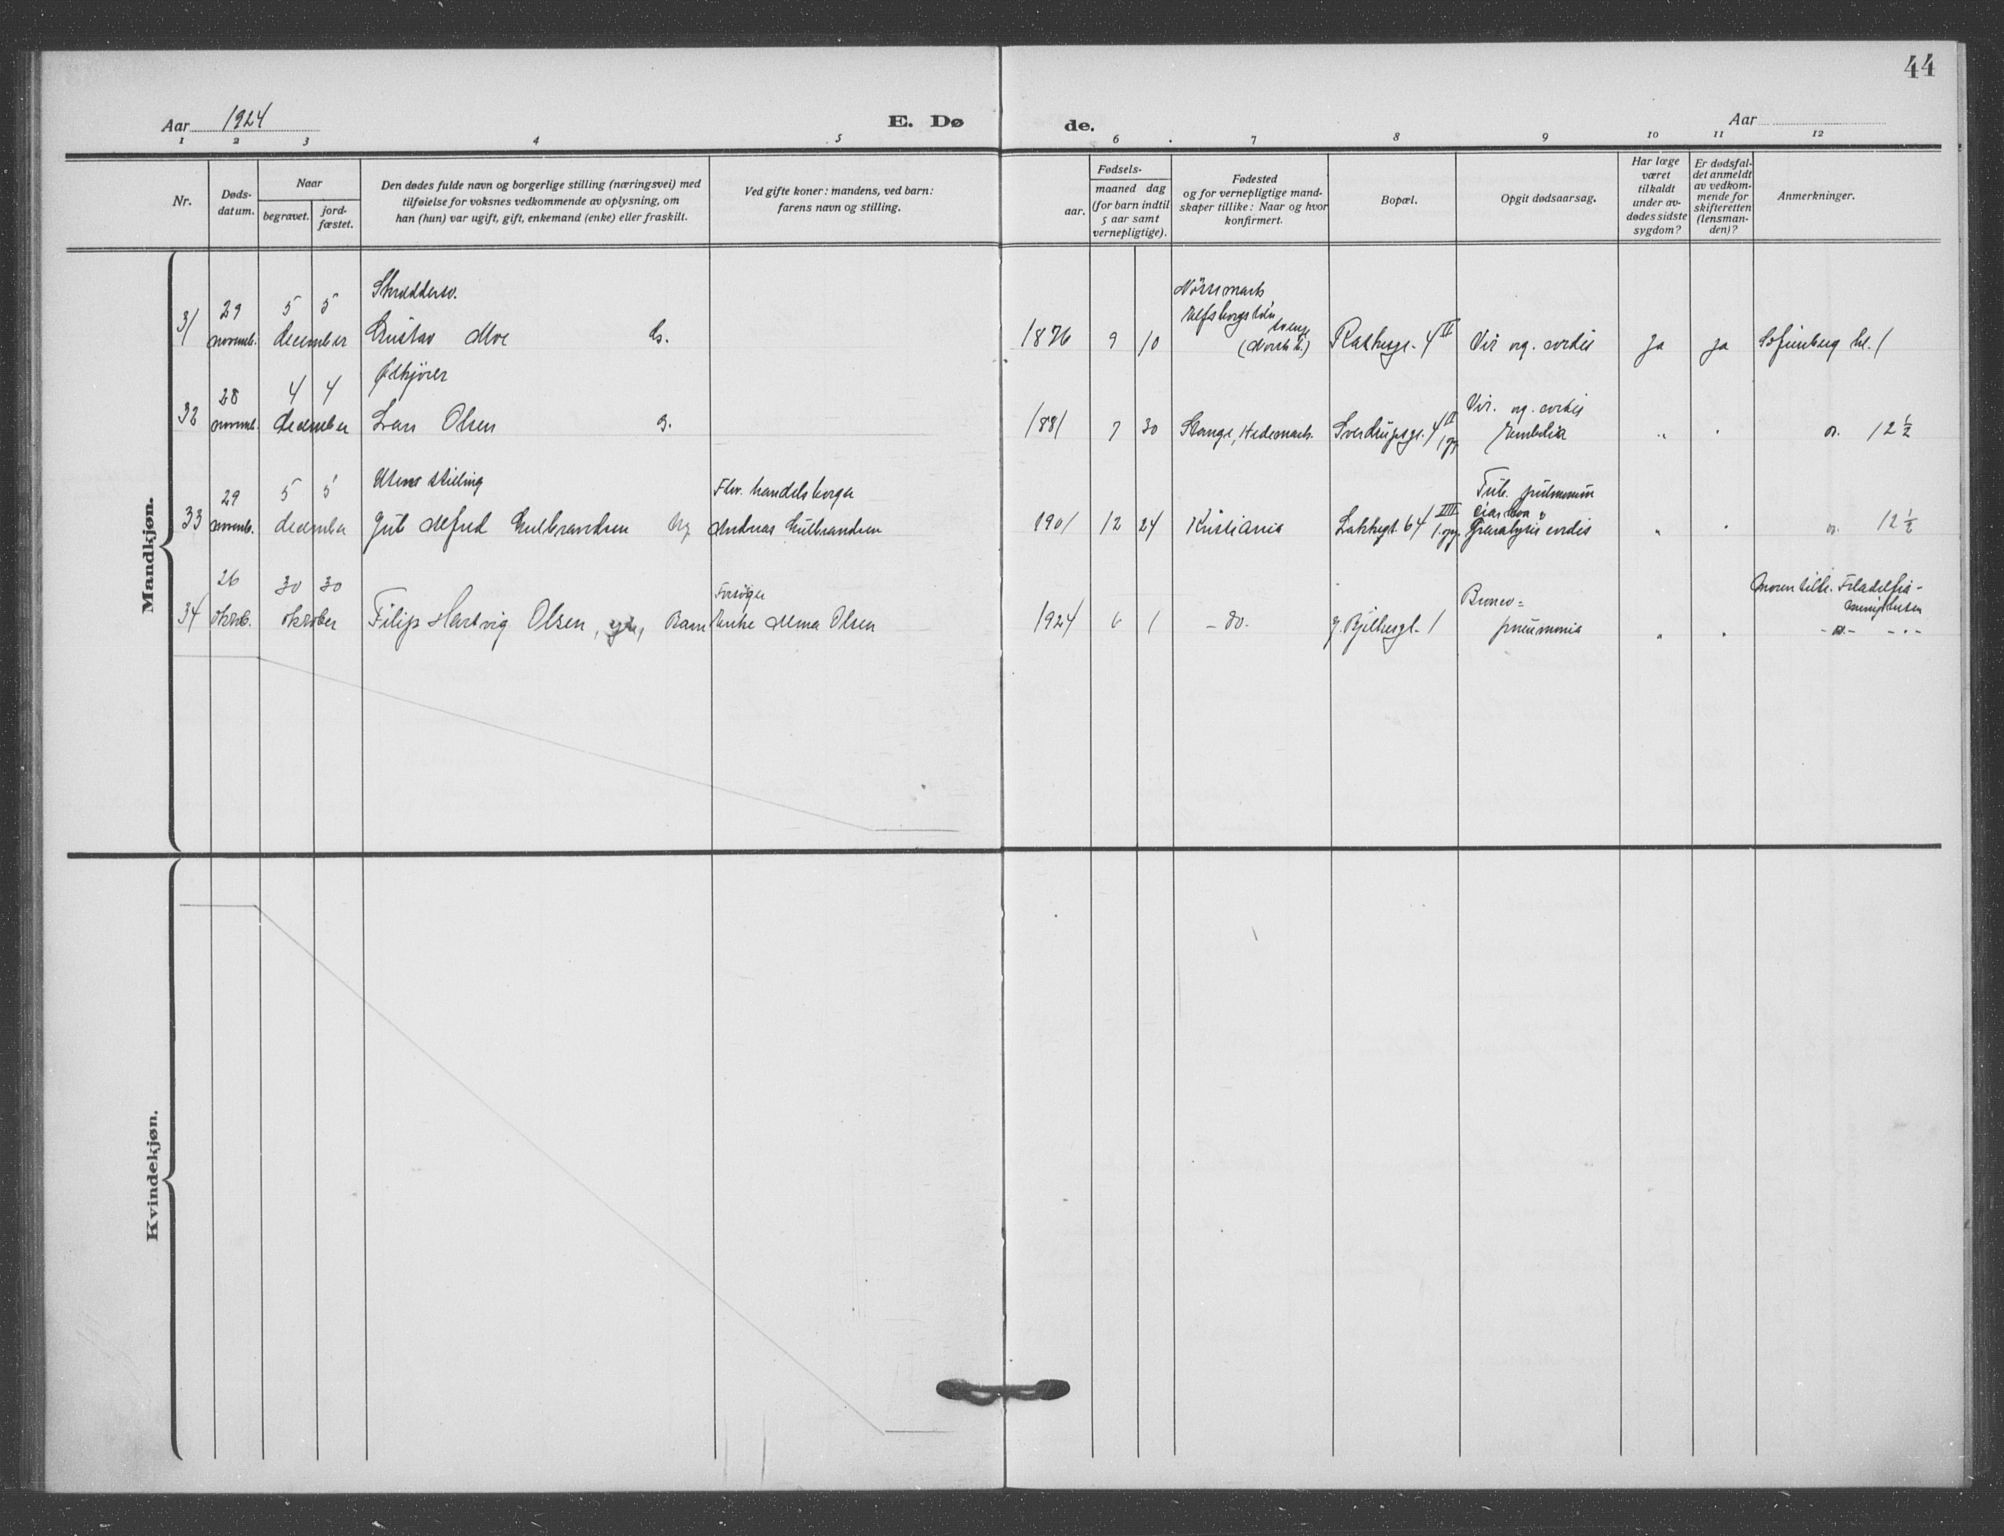 44
Aar 1924
E. Dø
de.
Aar
1 2 3 4 5 6 7 8 9 10 11 12
Nr.
Døds-
datum.
Naar
begravet.
jord-
fæstet.
Den dødes fulde navn og borgerlige stilling (næringsvei) med
tilføielse for voksnes vedkommende av oplysning, om
han (hun) var ugift, gift, enkemand (enke) eller fraskilt.
Ved gifte koner: mandens, ved barn:
farens navn og stilling.
Fødsels-
aar.
maaned dag
(for barn indtil
5 aar samt
vernepligtige).
Fødested
og for vernepligtige mand-
skaper tillike: Naar og hvor
konfirmert.
Bopæl.
Opgit dødsaarsag.
Har læge
været
tilkaldt
under av-
dødes sidste
sygdom?
Er dødsfal-
det anmeldt
av vedkom-
mende for
skifteretten
(lensman-
den)?
Anmerkninger.
Mandkjøn.
31
29
novemb.
5 5
december
Skræddersv.
Gustav Moe G.
1876 9 10
(norsk)
4 II
Vit. org. cordis
Ja
Ja
Sofienberg kl. 1
32
28
novemb.
4 4
december
Ølkjører
Lars Olsen G.
1881 7 30
Stange, Hedemark.
Sverdrupsgt. 4 II
1 opg.
Vit. org. cordis
Embolia
" "
do. 12 ½
33
29
novemb.
5 5
december
Uten stilling
Alfred Gulbrandsen Ug.
Fhv. handelsborger
Andreas Gulbrandsen
1901 12 24
Kristiania
Lakkegt 64 III
1. opg.
Tub. pulmonum
Paralysis cordis
" "
do. 12 ½
34
26
oktob.
30 30
oktober
Filip Hartvig Olsen, Barn
Forsørger
Enke Alma Olsen
1924 6 1
- do.
1
Bronco=
pneumonia
" "
Moren tilh. Filadelfia-
menigheten
- do. - - " -
Kvindekjøn.